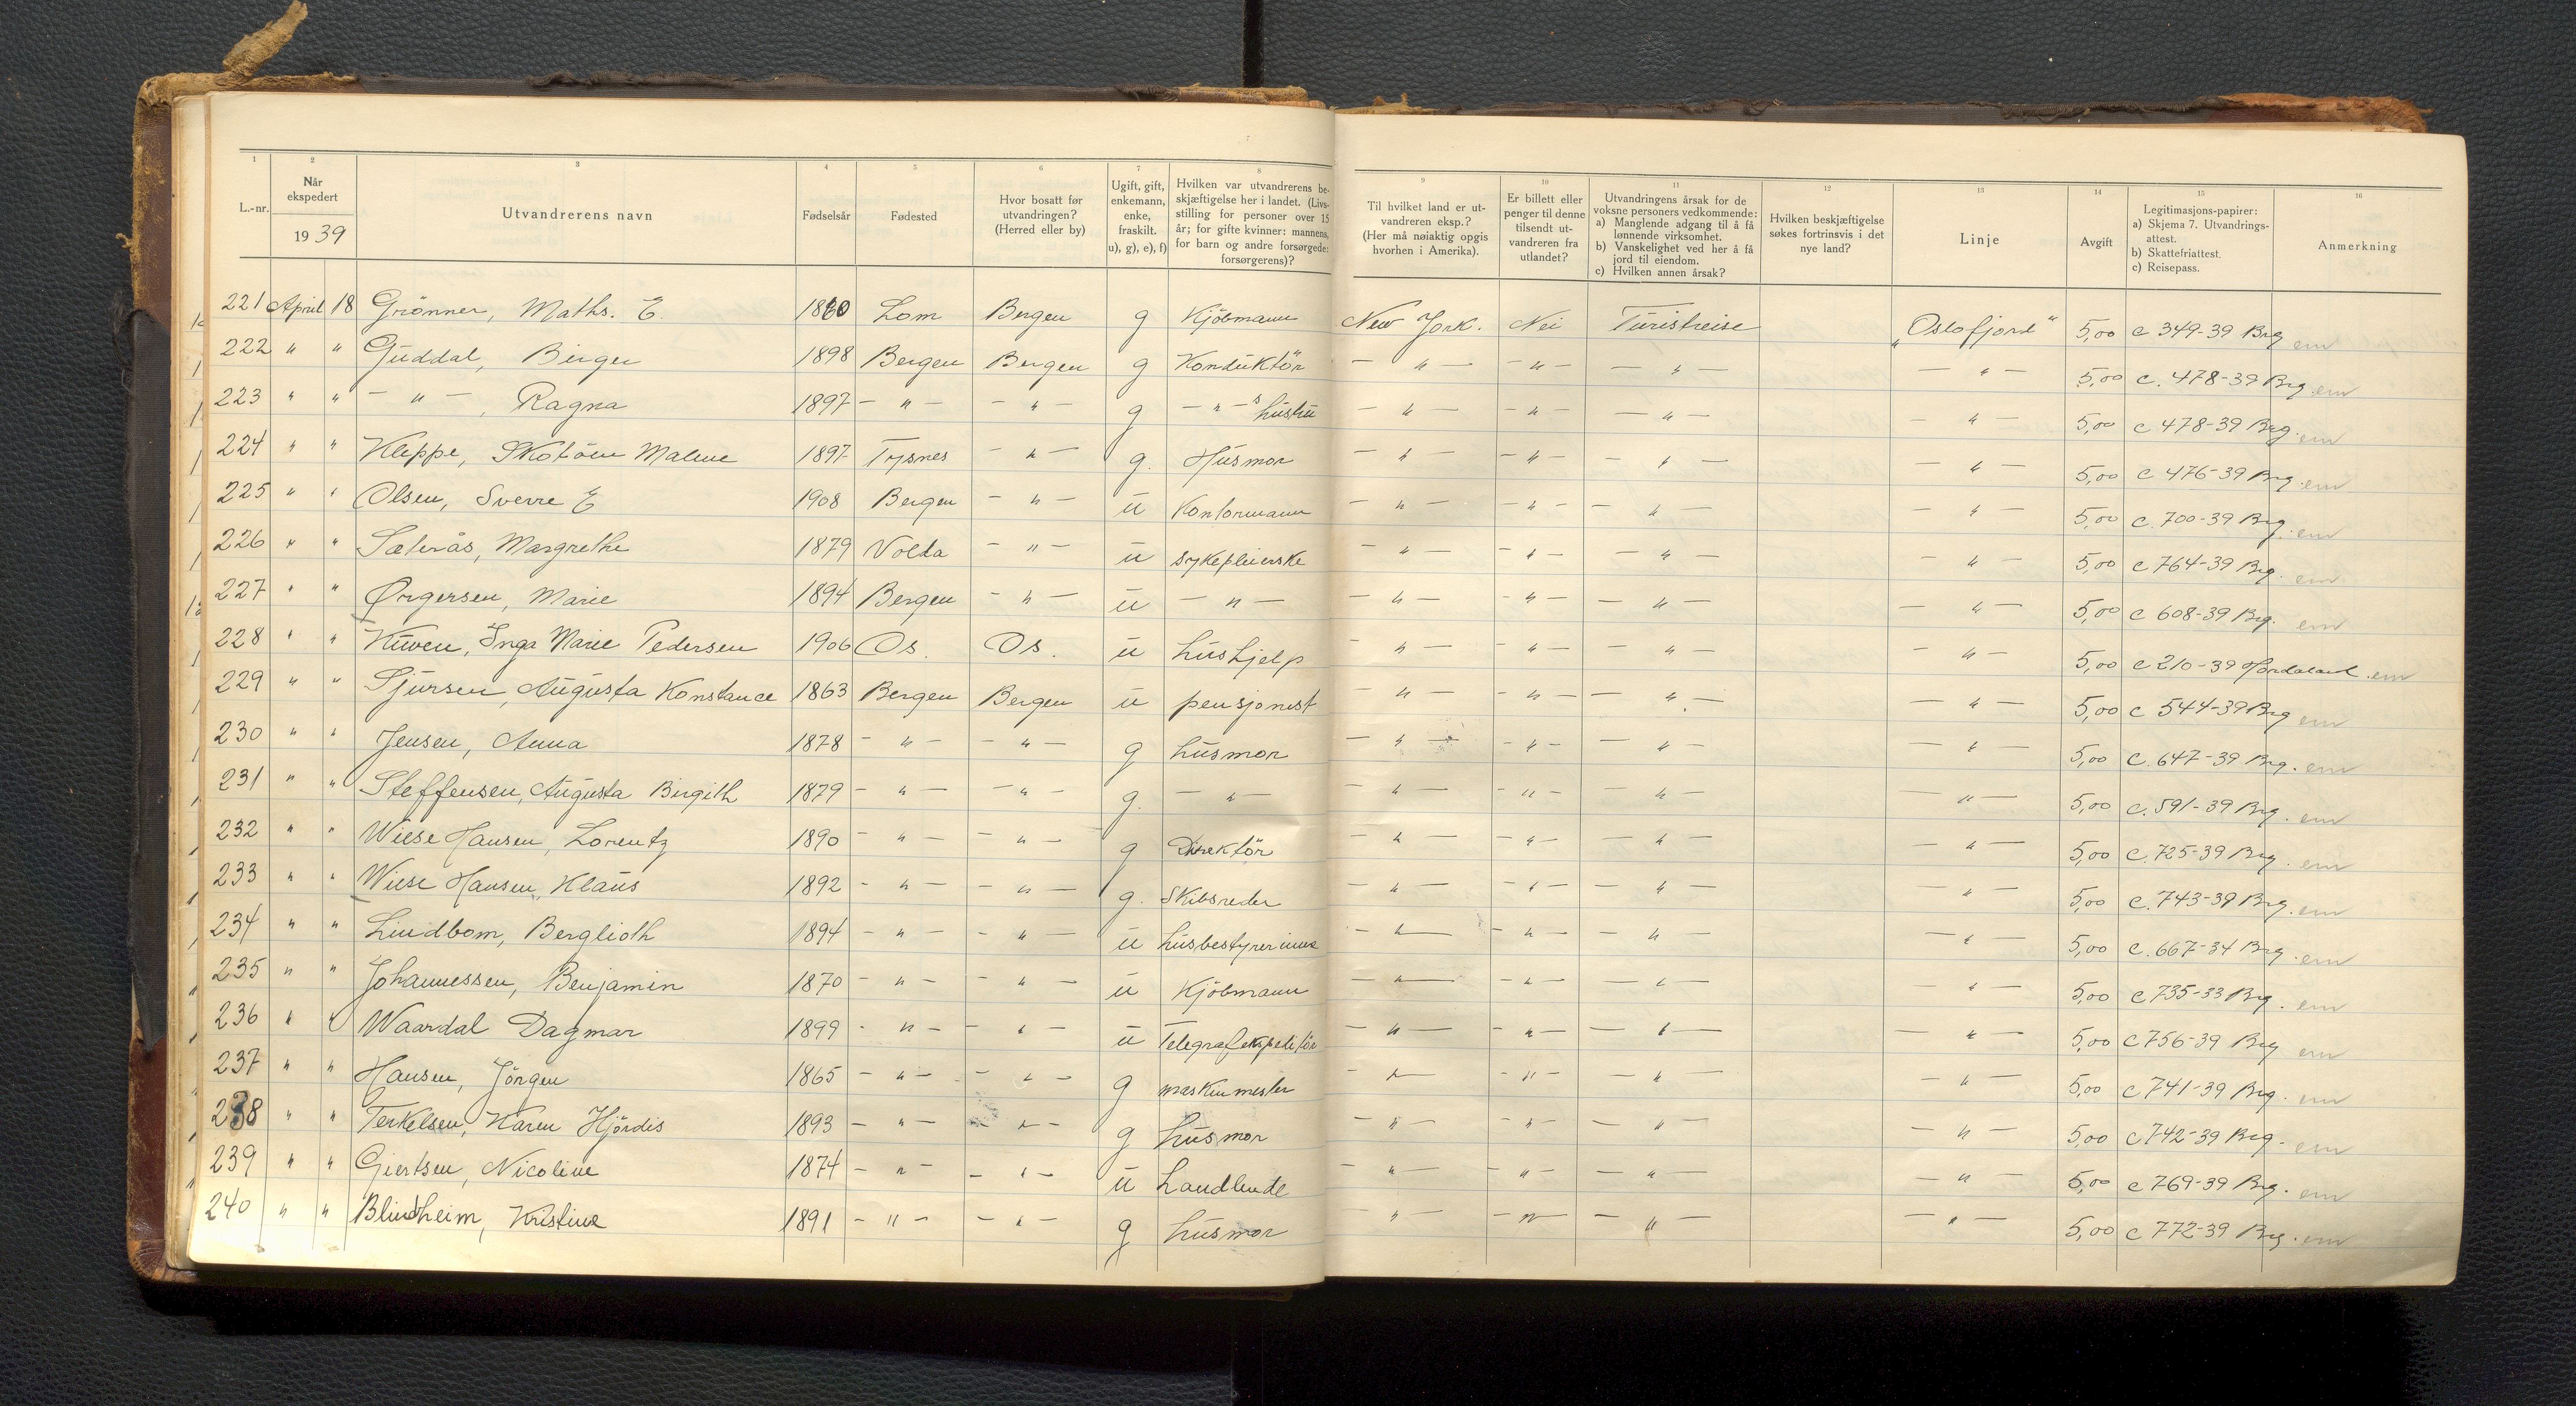 1 2 3 4 5 6 7 8 9 10 11 12 13 14 15 16
L.-nr. | Når ekspedert 1939 | Utvandrerens navn | Fødselsår | Fødested | Hvor bosatt før utvandringen? (Herred eller by) | Ugift, gift, enkemann, enke, fraskilt. u), g), e), f) | Hvilken var utvandrerens beskjæftigelse her i landet. (Livsstilling for personer over 15 år; for gifte kvinner: mannens, for barn og andre forsørgede: forsørgerens)? | Til hvilket land er utvandreren eksp.? (Her må nøiaktig opgis hvorhen i Amerika). | Er billett eller penger til denne tilsendt utvandreren fra utlandet? | Utvandringens årsak for de voksne personers vedkommende: a) Manglende adgang til å få lønnende virksomhet. b) Vanskelighet ved her å få jord til eiendom. c) Hvilken annen årsak? | Hvilken beskjæftigelse søkes fortrinsvis i det nye land? | Linje | Avgift | Legitimasjons-papirer: a) Skjema 7. Utvandringsattest. b) Skattefriattest. c) Reisepass. | Anmerkning
221 April 18 Grönner, Maths. E. 1860 Lom Bergen g Kjöbmann New York. Nei Turistreise „Oslofjord" 5,00 c 349-39 Brg em
222 " " Guddal, Birger 1898 Bergen Bergen g Konduktör - " - - " - - " - - " - 5,00 c. 478-39 Brg. em
223 " " - " -, Ragna 1897 - " - - " - g - " -s hustru - " - - " - - " - - " - 5,00 c 478-39 Brg. em
224 " " Kleppe, Malene 1897 Tysnes - " - g. Husmor - " - - " - - " - - " - 5,00 c 476-39 Brg. em
225 " " Olsen, Sverre E 1908 Bergen - " - u Kontormann - " - - " - - " - - " - 5,00 c. 700-39 Brg. em
226 " " Sæterås, Margrethe 1879 Volda - " - u sykepleierske - " - - " - - " - - " - 5,00 c 764-39 Brg. em
227 " " Ørgersen, Marie 1894 Bergen - " - u - " - - " - - " - - " - - " - 5,00 c 608-39 Brg. em
228 " " Kuven, Inga Marie Pedersen 1906 Os. Os. u hushjelp - " - - " - - " - - " - 5,00 c 210-39 Hordaland. em
229 " " Sjursen, Augusta Konstance 1863 Bergen Bergen u pensjonist - " - - " - - " - - " - 5,00 c 544-39 Brg em
230 " " Jensen, Anna 1878 - " - - " - g husmor - " - - " - - " - - " - 5,00 c. 647-39 Brg. em
231 " " Steffensen, Augusta Birgith 1879 - " - - " - g. - " - - " - - " - - " - - " - 5,00 c. 591-39 Brg. em
232 " " Wiese Hansen, Lorentz 1890 - " - - " - g Direktör - " - - " - - " - - " - 5,00 c. 725-39 Brg. em
233 " " Wiese Hansen, Klaus 1892 - " - - " - g. Skibsreder - " - - " - - " - - " - 5,00 c. 743-39 Brg. em
234 " " Lindbom, Berglioth 1894 - " - - " - u husbestyrerinne - " - - " - - " - - " - 5,00 c. 667-34 Brg. em
235 " " Johannessen, Benjamin 1870 - " - - " - u Kjöbmann - " - - " - - " - " - 5,00 c 735-33 Brg. em
236 " " Waardal Dagmar 1899 - " - - " - u Telegrafekspeditör - " - - " - - " - - " - 5,00 c 756-39 Brg em
237 " " Hansen, Jörgen 1865 - " - - " - g maskinmester - " - - " - - " - - " - 5,00 c 741-39 Brg. em
238 " " Terkelsen, Karen Hjördis 1893 - " - - " - g husmor - " - - " - - " - - " - 5,00 c 742-39 Brg. em
239 " " Giertsen, Nicoline 1874 - " - - " - u Handlende - " - " - " - - " - 5,00 c 769-39 Brg. em
240 " " Blindheim, Kristine 1891 - " - - " - g husmor - " - - " - - " - - " - 5,00 c 772-39 Brg. em